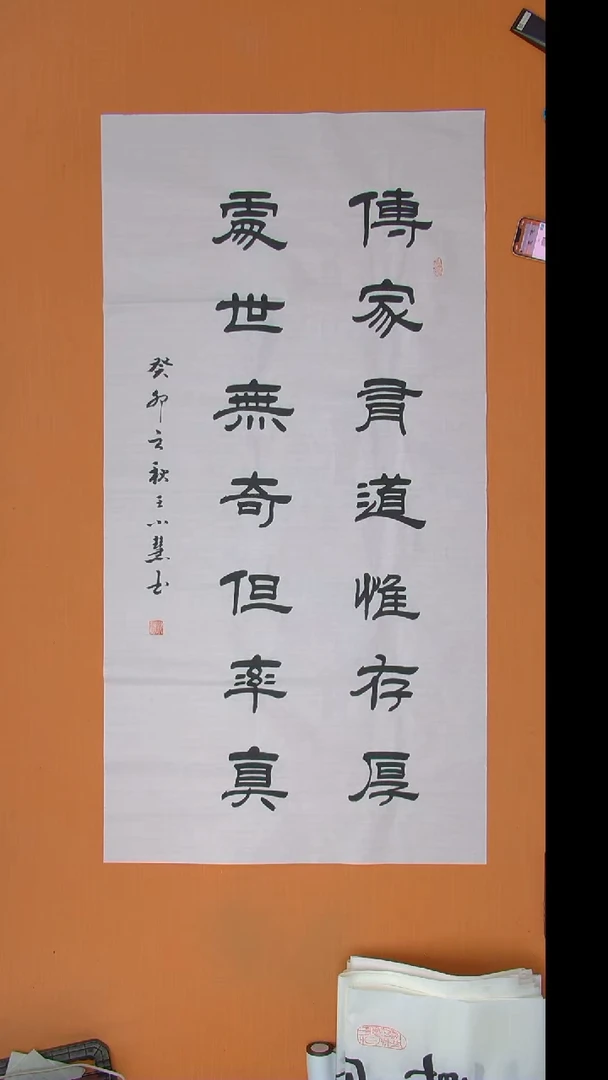 傳家有道惟存厚
處世無奇但率真
癸卯立秋王小慧书